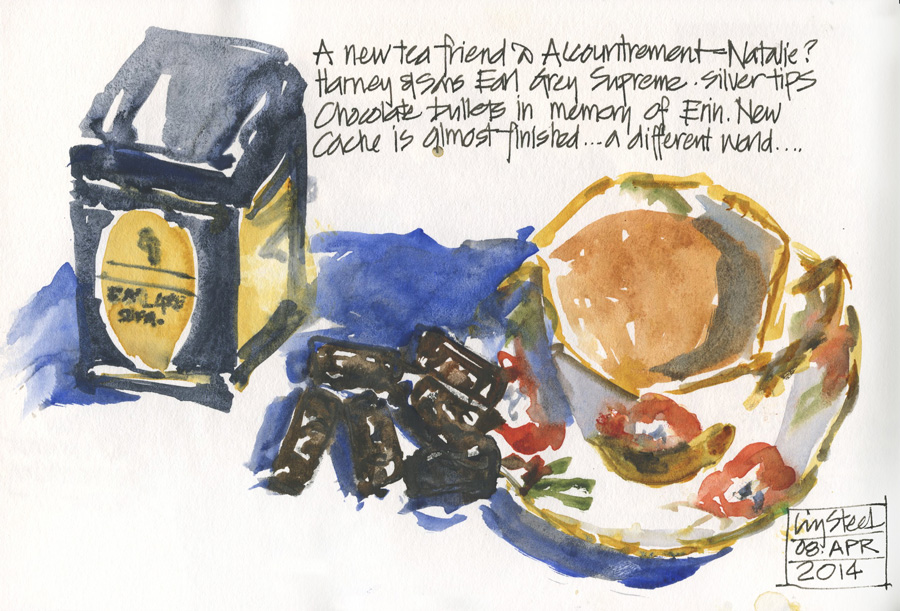 A new tea friend @ Accountrement - Natalie?
Harney & Sons Earl Grey Supreme. silver tips
Chocolate bullets in memory of Erin. New
Cache is almost finished... a different world....
Liz Steel
08. APR
2014